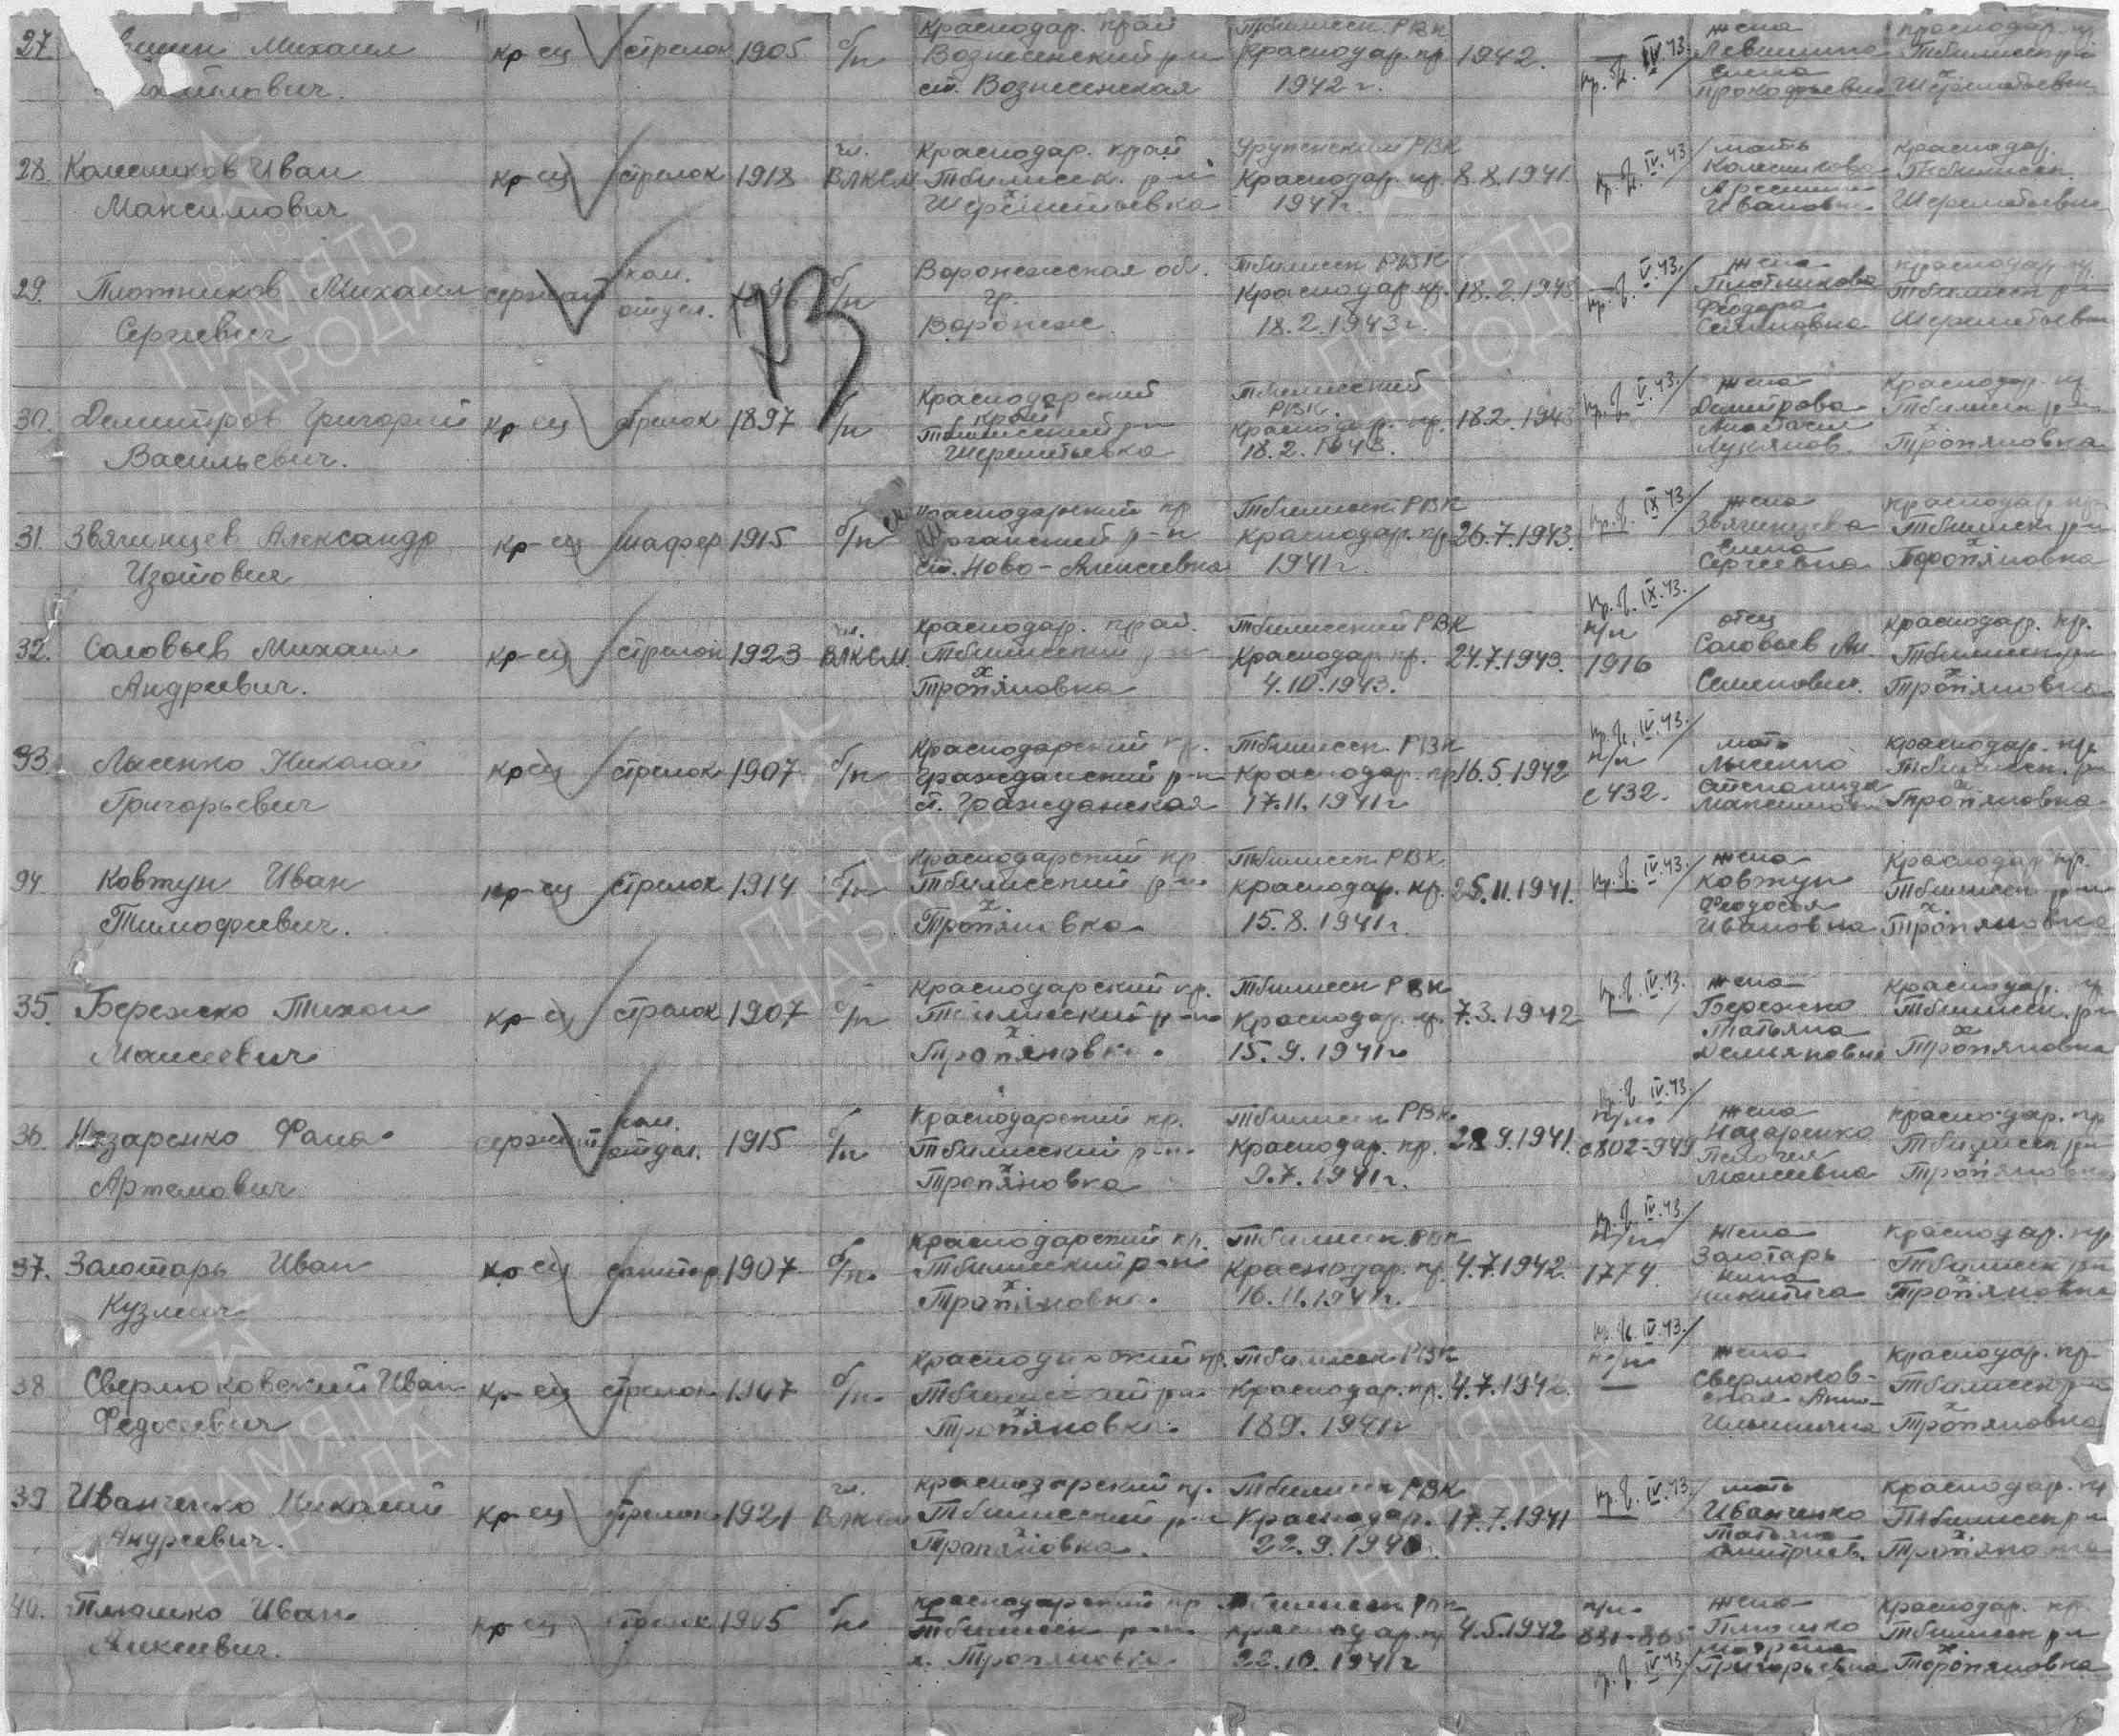 27. Михаил кр-ец стрелок 1905 б/п Краснодар. край Вознесенский р-н ст. Вознесенская Тбилисск. РВК Краснодар. кр 1942 г. 1942. IV.43. жена Левшина Елена Прокофьевна Краснодар. кр Тбилисск р-н х Шереметьевка
28. Колесников Иван Максимович кр-ец стрелок 1918 чл. ВЛКСМ Краснодар. край Тбилисск. р-н х Шереметьевка РВК Краснодар. кр. 1941г. 8.8.1941. IV.43 мать Колесникова Ивановна Краснодар. Тбилисск. Шереметьевка
29. Плотников Михаил Сергеевич сержант ком. отдел. 1896 б/п Воронежская обл. гр. Воронеж. Тбилисск РВК Краснодар. кр. 18.2.1943г. 18.2.1943 V.43. жена Плотникова Федора Семеновна Краснодар. кр. Тбилисск р-н Шереметьевка
30. Демитров Григорий Васильевич. кр-ец стрелок 1897 б/п Краснодарский край Тбилисский р-н х Шереметьевка Тбилисский РВК. Краснодар. кр. 18.2.1943. 18.2.1943 V.43. жена Демитрова Анастасия Лукянов. Краснодар. кр Тбилисск р-н х Тропяновка
31. Звягинцев Александр Изотович кр-ец шофер 1915 б/п Краснодарский кр р-н ст. Ново-Алексеевка Тбилисск РВК Краснодар. кр 1941г. 26.7.1943. IX 43 жена Звягинцева Елена Сергеевна Краснодар кр. Тбилисск р-н х Тропяновка
32. Соловьев Михаил Андреевич. кр-ец стрелок 1923 чл. ВЛКСМ. Краснодар. край. Тбилисский р-н х Тропяновка Тбилисский РВК Краснодар. кр. 4.10.1943. 24.7.1943. IX.43. п/п 1916 отец Соловьев Ан. Семенович. Краснодар. кр. Тбилисск р-н х Тропяновка
33. Лысенко Николай Григорьевич кр-ец стрелок 1907 б/п Краснодарский кр. Гражданский р-н ст. Гражданская Тбилисск. РВК Краснодар. кр 17.11.1941г 16.5.1942 IV.43. п/п с 432. мать Лысенко Степанида Максимовн Краснодар. кр. Тбилисск. р-н х Тропяновка
34. Ковтун Иван Тимофеевич. кр-ец стрелок 1914 б/п Краснодарский кр. Тбилисский р-н х Тропяновка Тбилисск РВК Краснодар. кр. 15.8.1941г. 25.11.1941. IV.43. жена Ковтун Феодосья Ивановна Краснодар кр. Тбилисск р-н х. Тропяновка
35. Бережко Тихон Моисеевич кр-ец стрелок 1907 б/п Краснодарский кр. Тбилисский р-н х Тропяновка. Тбилисск РВК Краснодар. кр. 15.9.1941г 7.3.1942 IV.43. жена Бережко Татьяна Демяновна Краснодар. кр Тбилисск. р-н х Тропяновка
36. Назаренко Фома Артемович сержант ком. отдел. 1915 б/п Краснодарский кр. Тбилисский р-н. х Тропяновка Тбилисск РВК. Краснодар. кр. 9.7.1941г. 28 9.1941. IV.43. п/п с802-949 жена Назаренко Пелагея Моисеевна Краснодар. кр Тбилисск р-н х Тропяновка
37. Золотарь Иван Кузмич кр-ец санитар 1907 б/п. Краснодарский кр. Тбилисский р-н х Тропяновка. Тбилисск. РВК Краснодар. кр. 16.11.1941г. 4.7.1942. IV.43. п/п 1774. жена Золотарь Нина Никитича Краснодар. кр Тбилисск р-н х Тропяновка
38 Свермоковский Иван Федосеевич кр-ец стрелок 1907 б/п. Краснодарский кр. Тбилисский р-н х Тропяновка. Тбилисск РВК Краснодар. кр. 18 9. 1941г 4.7.194 IV.43. п/п жена Свермоковская Анна Ильинична Краснодар. кр Тбилисск р-н х Тропяновка
39 Иванченко Николай Андреевич. кр-ец стрелок 1921 чл. ВЛКСМ Краснодарский кр. Тбилисский р-н х Тропяновка. Тбилисск РВК Краснодар. 22.9.1940. 17.7.1941 IV.43 мать Иванченко Татьяна Дмитриев. Краснодар. кр Тбилисск р-н х Тропяновка
40. Плюшко Иван Алексеевич. кр-ец стрелок 1905 б/п Краснодарский кр Тбилисск р-н х. Тропяновка Тбилисск РВК Краснодар. кр 22.10.1941г 4.5.1942 п/п 831-865 IV.43 жена Плюшко Григорьевна Краснодар. кр. Тбилисск р-н х Тропяновка
ПАМЯТЬ НАРОДА